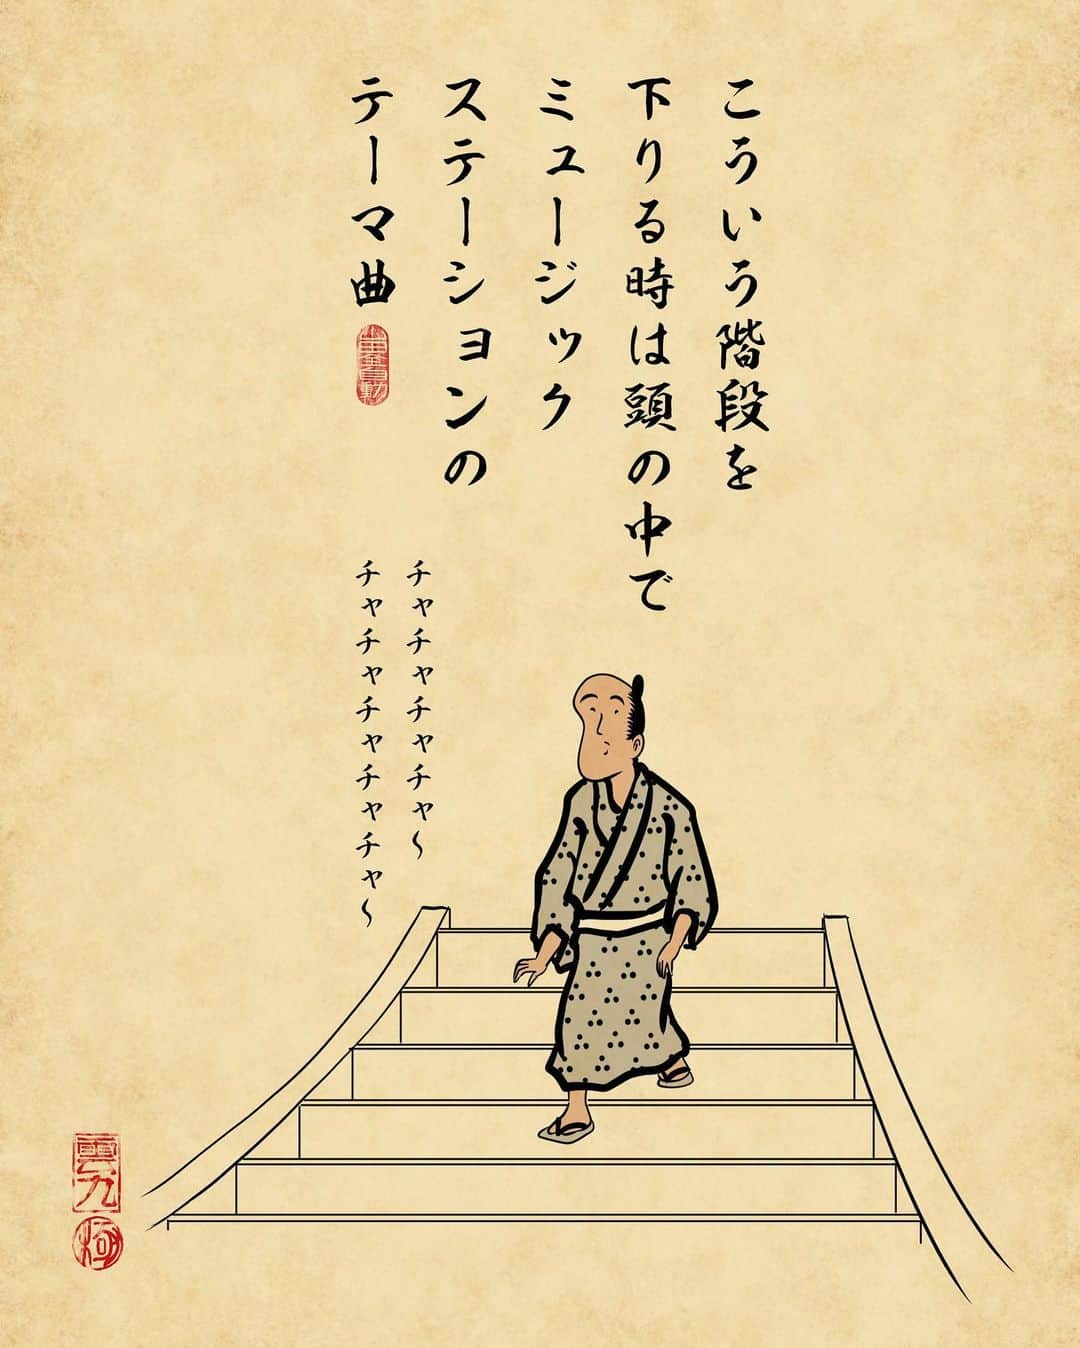 こういう階段を
下りる時は頭の中で
ミュージック
ステーションの
テーマ曲
チャチャチャチャ〜
チャチャチャチャチャ〜